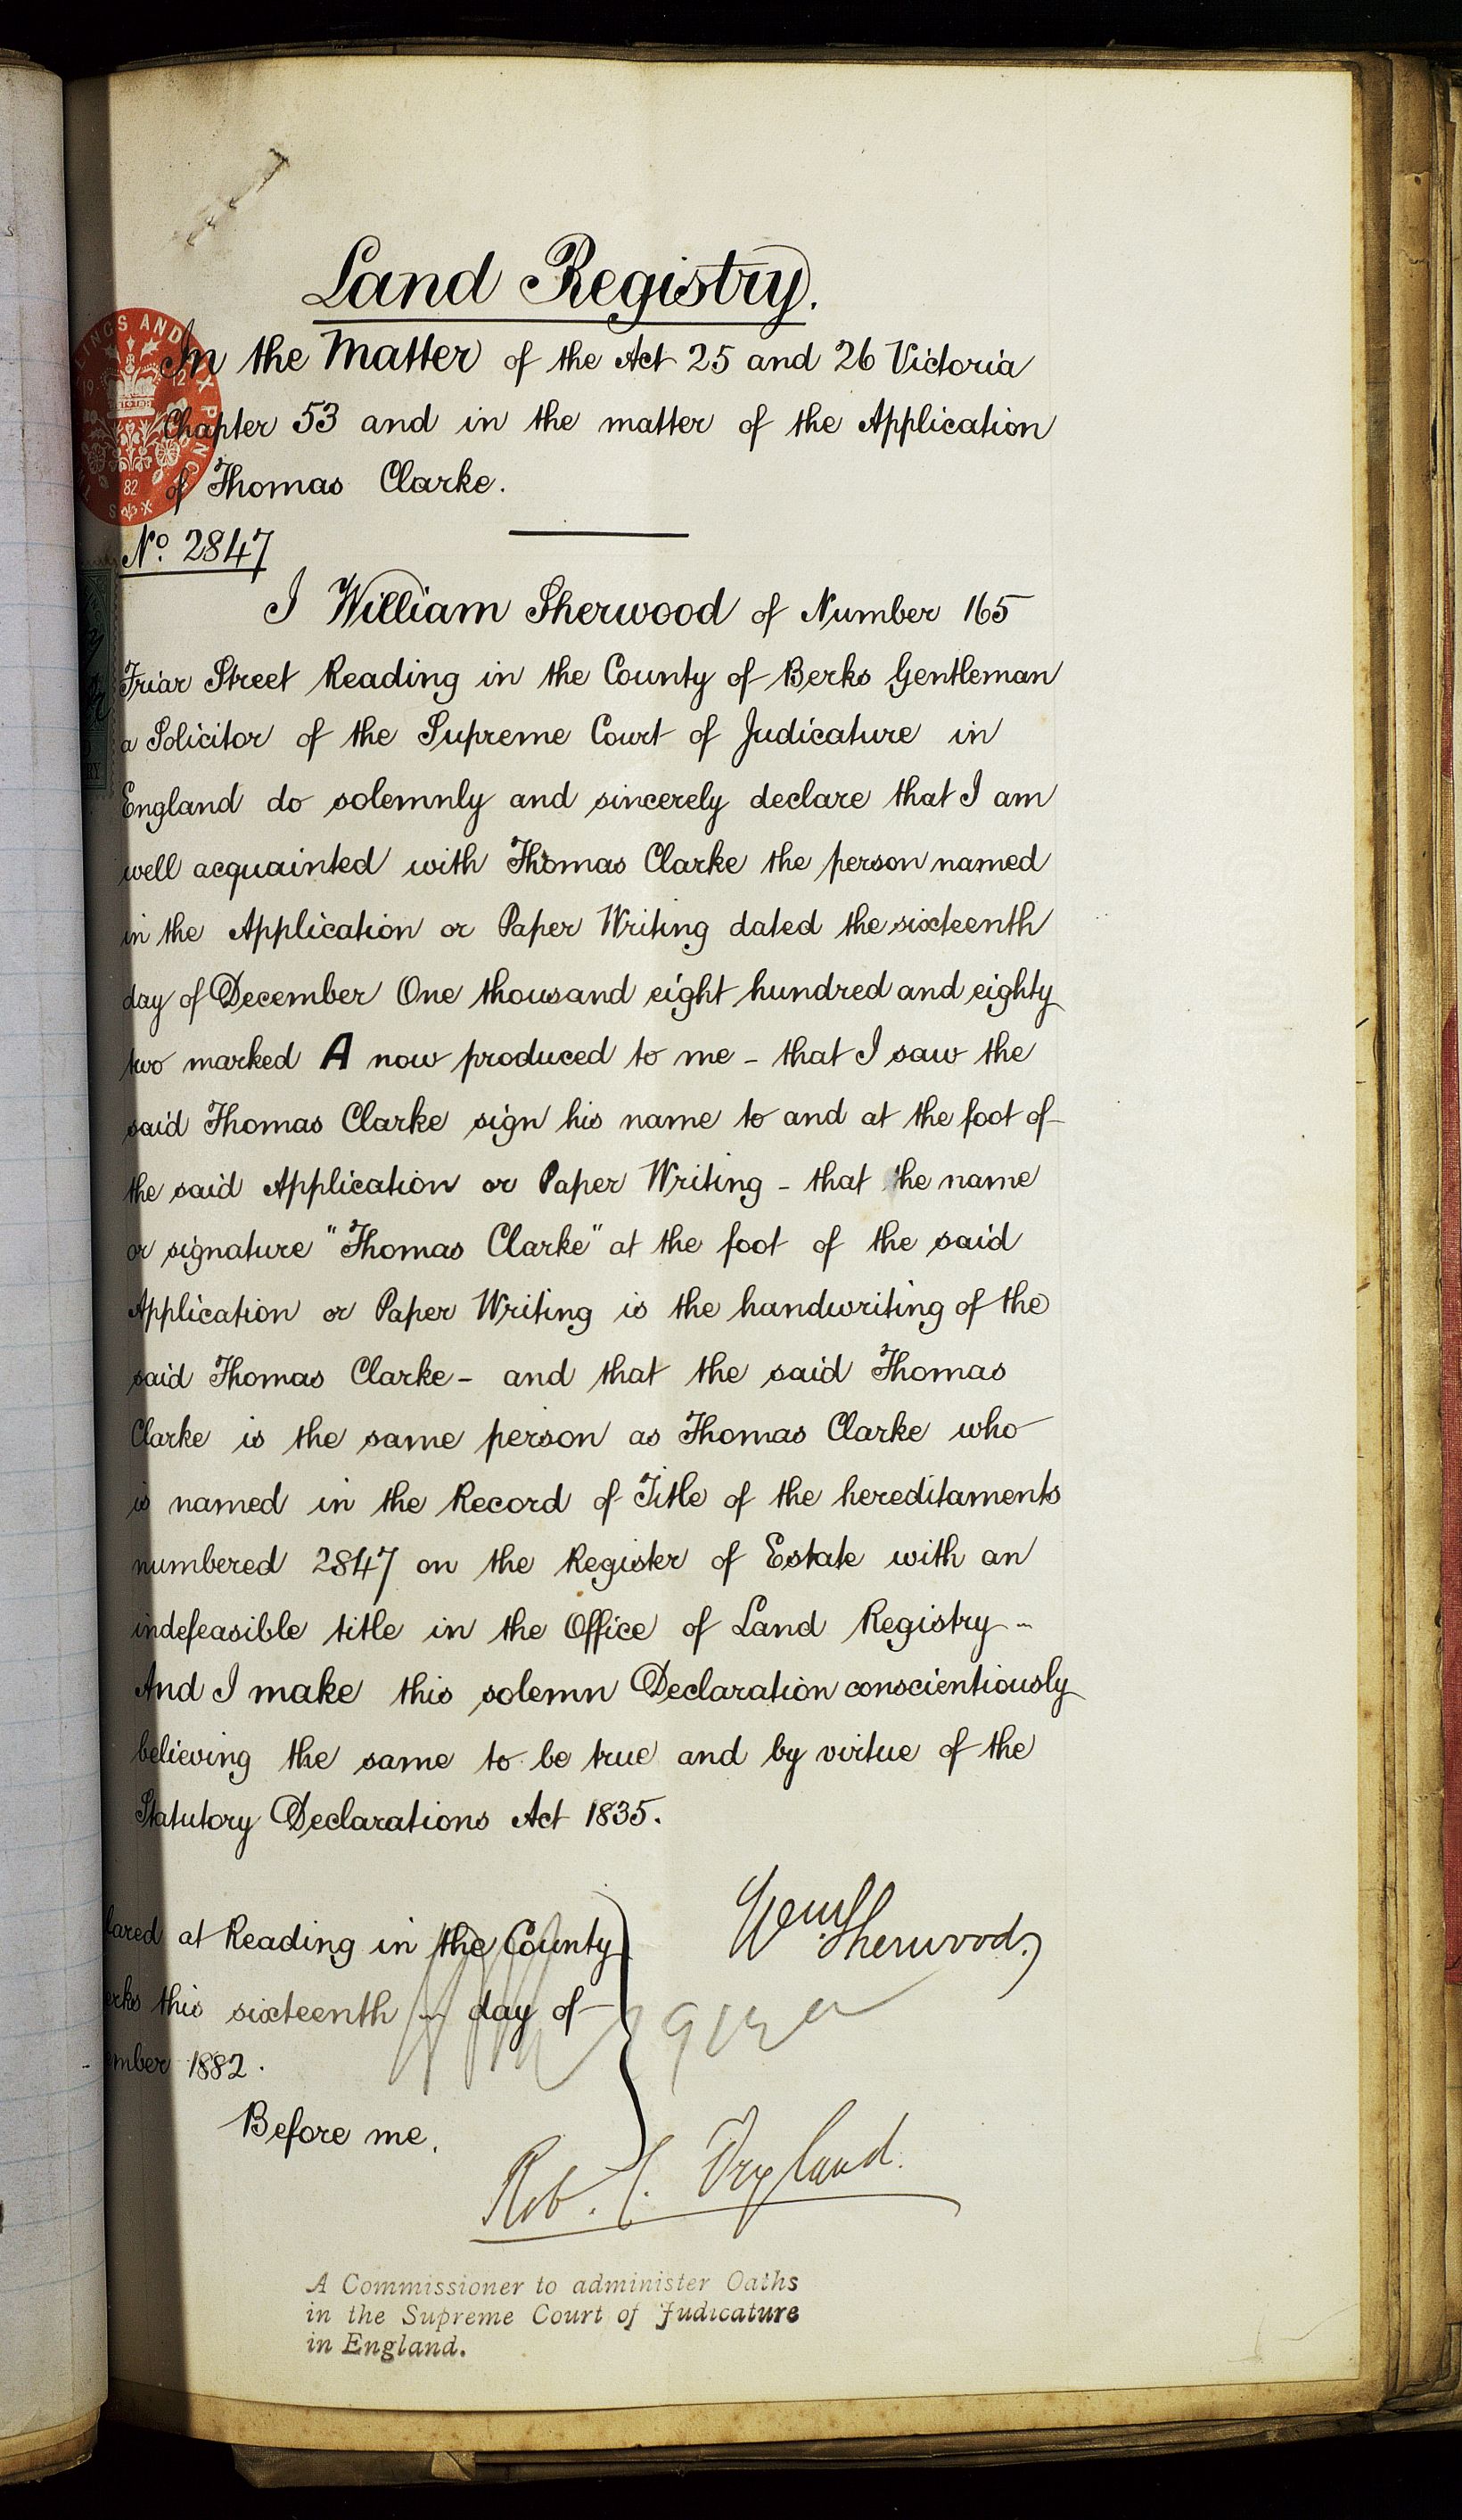 Land Registry.
In the Matter of the Act 25 and 26 Victoria
Chapter 53 and in the matter of the Application
of Thomas Clarke.
No. 2847
I William Sherwood of Number 165
Friar Street Reading in the County of Berks Gentleman
a Solicitor of the Supreme Court of Judicature in
England do solemnly and sincerely declare that I am
well acquainted with Thomas Clarke the person named
in the Application or Paper Writing dated the sixteenth
day of December One thousand eight hundred and eighty
two marked A now produced to me - that I saw the
said Thomas Clarke sign his name to and at the foot of
the said Application or Paper Writing - that the name
or signature "Thomas Clarke" at the foot of the said
Application or Paper Writing is the handwriting of the
said Thomas Clarke - and that the said Thomas
Clarke is the same person as Thomas Clarke who
is named in the Record of Title of the hereditaments
numbered 2847 on the Register of Estate with an
indefeasible title in the Office of Land Registry -
And I make this solemn Declaration conscientiously
believing the same to be true and by virtue of the
Statutory Declarations Act 1835.
lared at Reading in the County
erks this sixteenth day of
ember 1882.
Wm Sherwood
Before me.
Rob. C. Dryland.
A Commissioner to administer Oaths
in the Supreme Court of Judicature
in England.